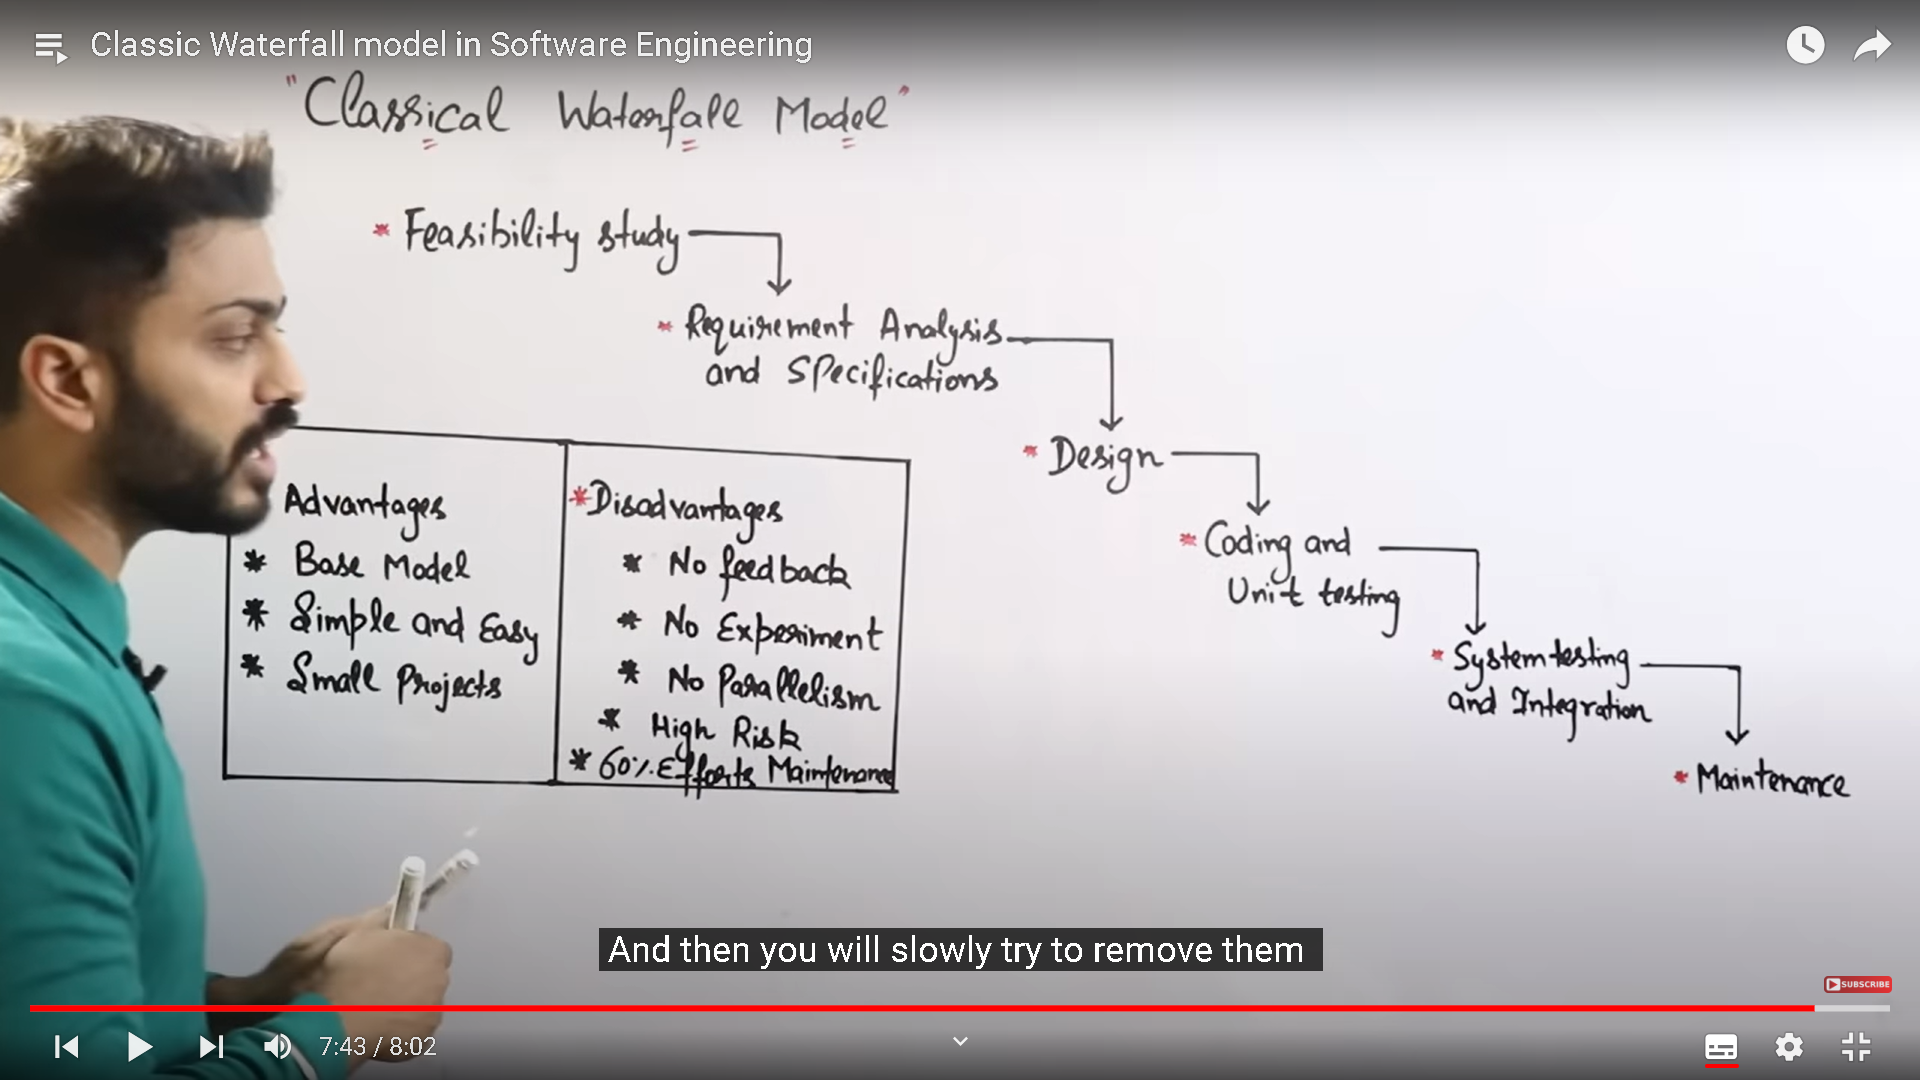 Classic Waterfall model in Software Engineering
"Classical Waterfall Model"
* Feasibility study
* Requirement Analysis
and Specifications
* Design
* Coding and
Unit testing
* System testing
and Integration
* Maintenance
Advantages
* Base Model
* Simple and Easy
* Small Projects
* Disadvantages
* No feedback
* No Experiment
* No Parallelism
* High Risk
* 60% Efforts Maintenance
And then you will slowly try to remove them
SUBSCRIBE
7:43 / 8:02